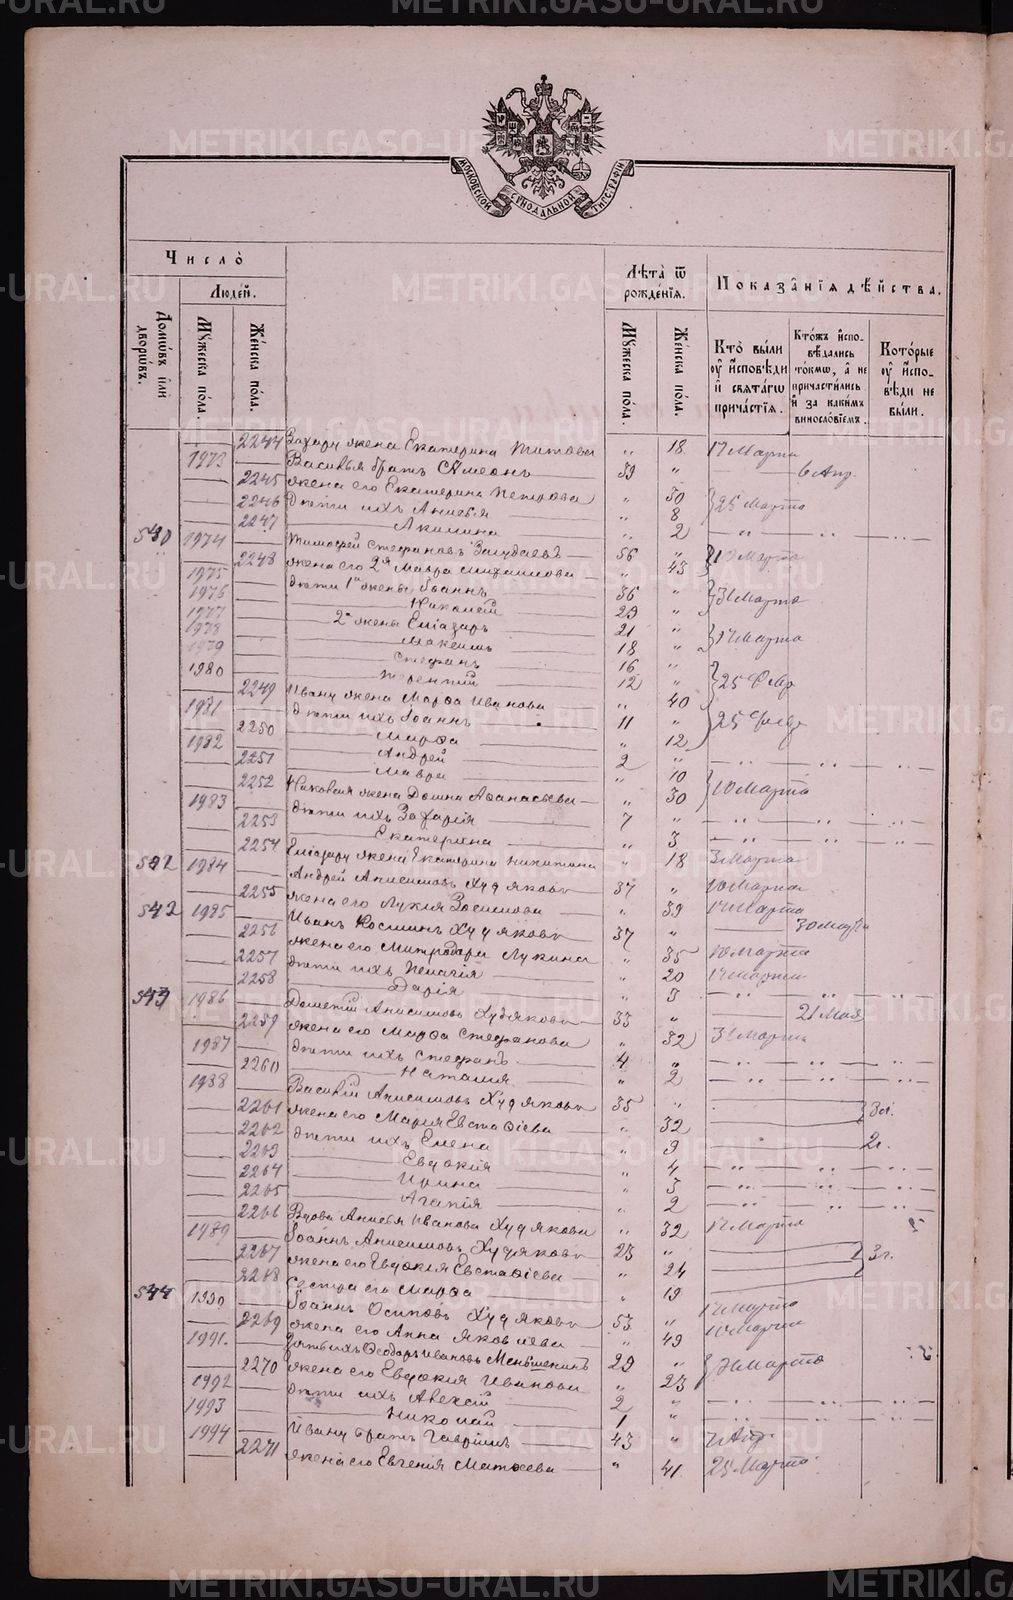 МОСКОВСКОЙ СѴНОДАЛЬНОЙ ТИПОГРАФІИ
Число
Людей.
Лѣта ѿ рожденія.
Показанія дѣйства.
Домѡвъ или дворѡвъ.
Мꙋжеска пола.
Женска пола.
Мꙋжеска пола.
Женска пола.
Кто были ꙋ исповѣди и свѧтагѡ причастіѧ.
Ктожъ исповѣдались токмѡ, а не причастились и за какимъ винословіемъ.
Которые ꙋ исповѣди не были.
2244 Захару жена Екатерина Титова „ 18. 17 Марта
1973 Василья братъ Симеонъ 39 „ 6 Апр.
2245 жена его Екатерина Петрова „ 30 25 Марта
2246 дѣти ихъ Анисья „ 8
2247 Акилина „ 2
540 1974 Тимофей Стефановъ 56 „
2248 жена его 2я Мавра Михаилова „ 43
1975 дѣти 1й жены Іоаннъ 36 „ 31 Марта
1976 Николай 29 „
1977 2й жены Еліазаръ 21 „ 17 Марта
1978 Максимъ 18 „
1979 Стефанъ 16 „ 25 Февр
1980 Терентий 12 „
2249 Ивану жена Марфа Иванова „ 40 25 Февр
1981 дѣти ихъ Іоаннъ 11 „
2250 Марфа „ 12
1982 Андрей 2 „
2251 Мавра „ 10 10 Марта
2252 Николая жена Домна Афанасьева „ 30
1983 дѣти ихъ Захарія 7 „
2253 Екатерина „ 3
2254 Еліазару жена Екатерина Никитина „ 18 3 Марта
1984 Андрей Анисимовъ Худяковъ 37 „ 10 Марта
2255 жена его Лукія Зосимова „ 39 17 Марта
542 1985 Иванъ Косминъ Худяковъ 37 „ 30 Марта
2256 жена его Митродора Лукина „ 35 10 Марта
2257 дѣти ихъ Пелагія „ 20 17 Марта
2258 Дарія „ 3
543 1986 Дометій Анисимовъ Худяковъ 33 „ 21 Мая
2259 жена его Марфа Стефанова „ 32 31 Марта
1987 дѣти ихъ Стефанъ 4 „
2260 Наталия „ 2
1988 Василій Анисимовъ Худяковъ 35 „
2261 жена его Мария Евстафіева „ 32
2262 дѣти ихъ Елена „ 9
2263 Евдокія „ 4
2264 Ирина „ 3
2265 Агапія „ 2
2266 Вдова Анисья Иванова Худякова „ 32 17 Марта
1989 Іоаннъ Анисимовъ Худяковъ 23 „
2267 жена его Евдокия Евстафіева „ 24
2268 Сестра его Марфа „ 19
544 1990 Іоаннъ Осиповъ Худяковъ 53 „ 17 Марта
2269 жена его Анна Яковлева „ 49 10 Марта
1991. Зять ихъ Феодоръ Ивановъ Меньшенинъ 29 „
2270 жена его Евдокия Иванова „ 23
1992 дѣти ихъ Алексій 2 „
1993 Николай 1 „
1994 Ивану братъ Гавріилъ 43 „
2271 жена его Евгения Матфеева „ 41. 25 Марта
METRIKI.GASO-URAL.RU